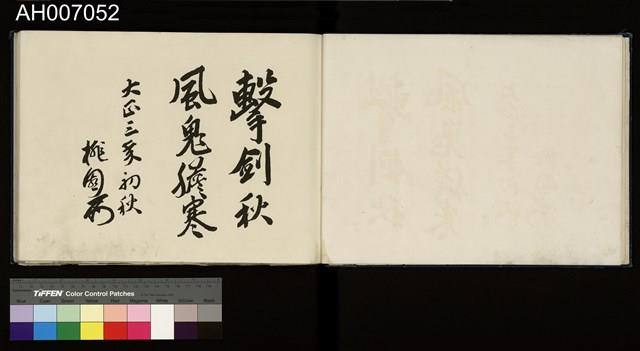 AH007052
擊劍秋
風鬼膽寒
大正三年初秋
桃園
TIFFEN Color Control Patches
Blue Cyan Green Yellow Red Magenta White 3/Color Black